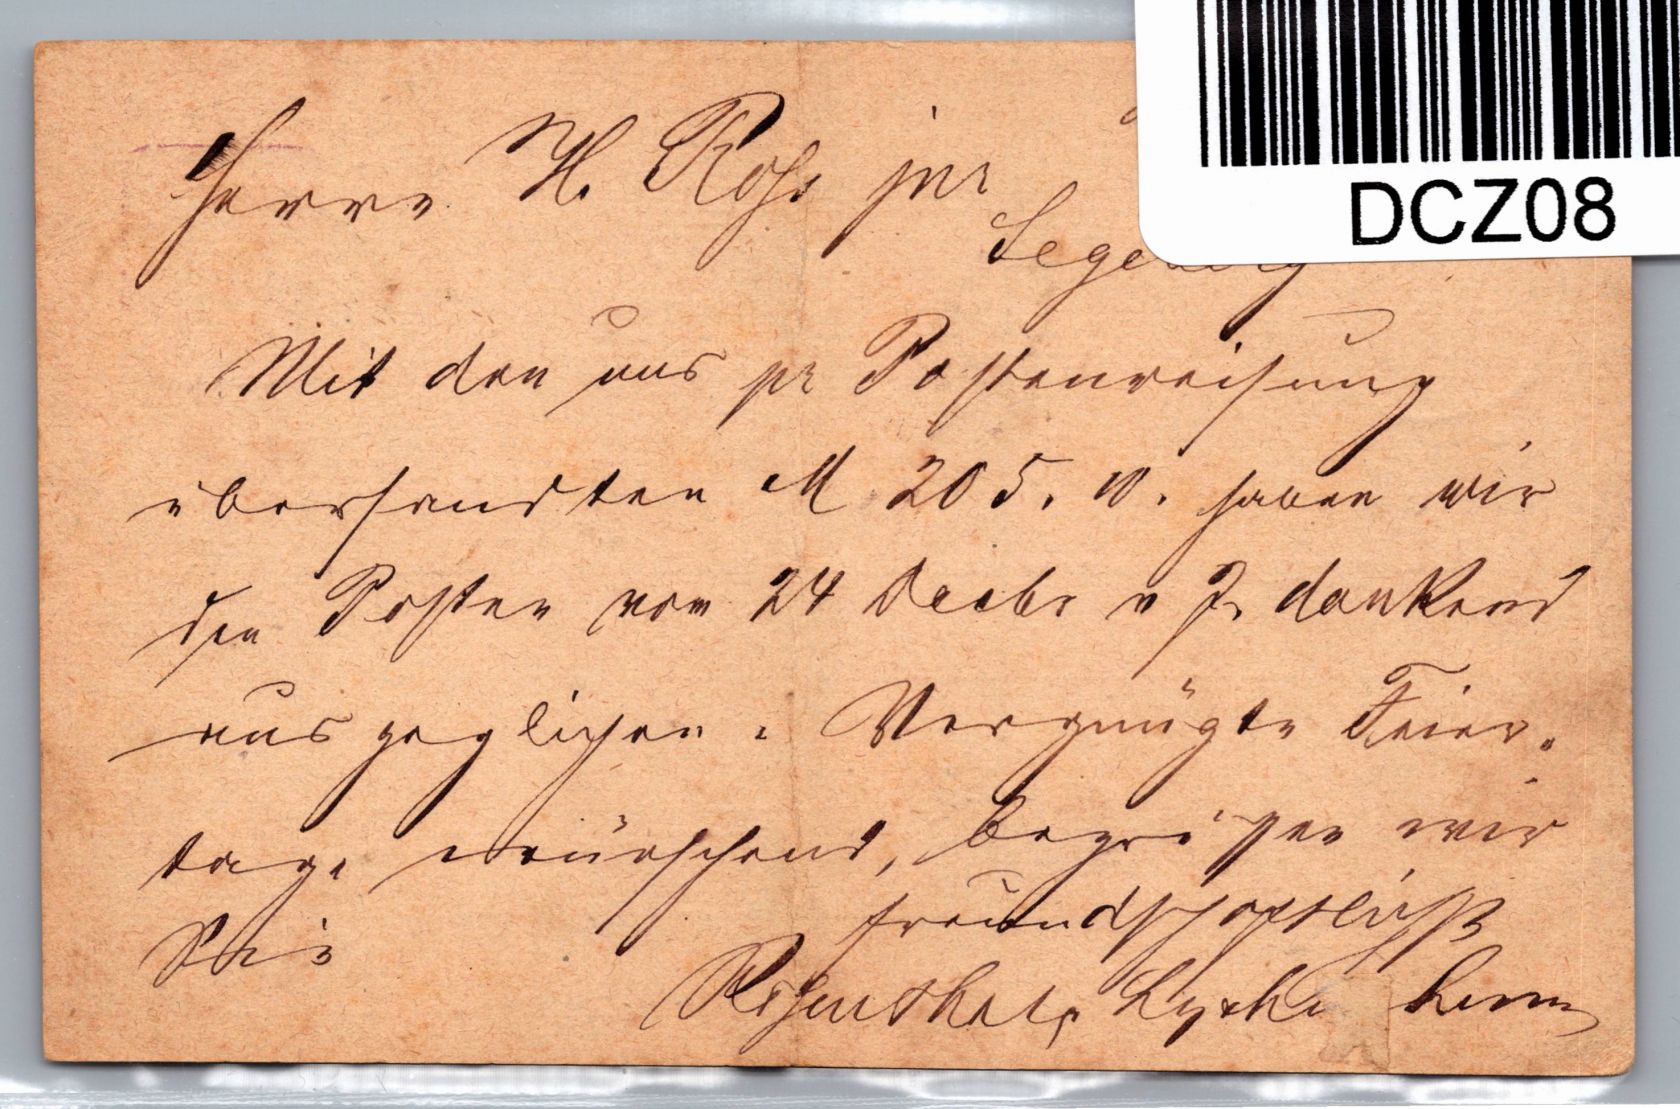 DCZ08
Herrn H. Rohs jnr
Segeberg
Mit den uns pr Postanweisung
übersandten M 205. 10. haben wir
den Posten vom 24 Decbr v J. dankend
ausgeglichen. Vergnügte Feier-
tage wünschend, begrüßen wir
Sie
freundschaftlichst
Rosenthal,